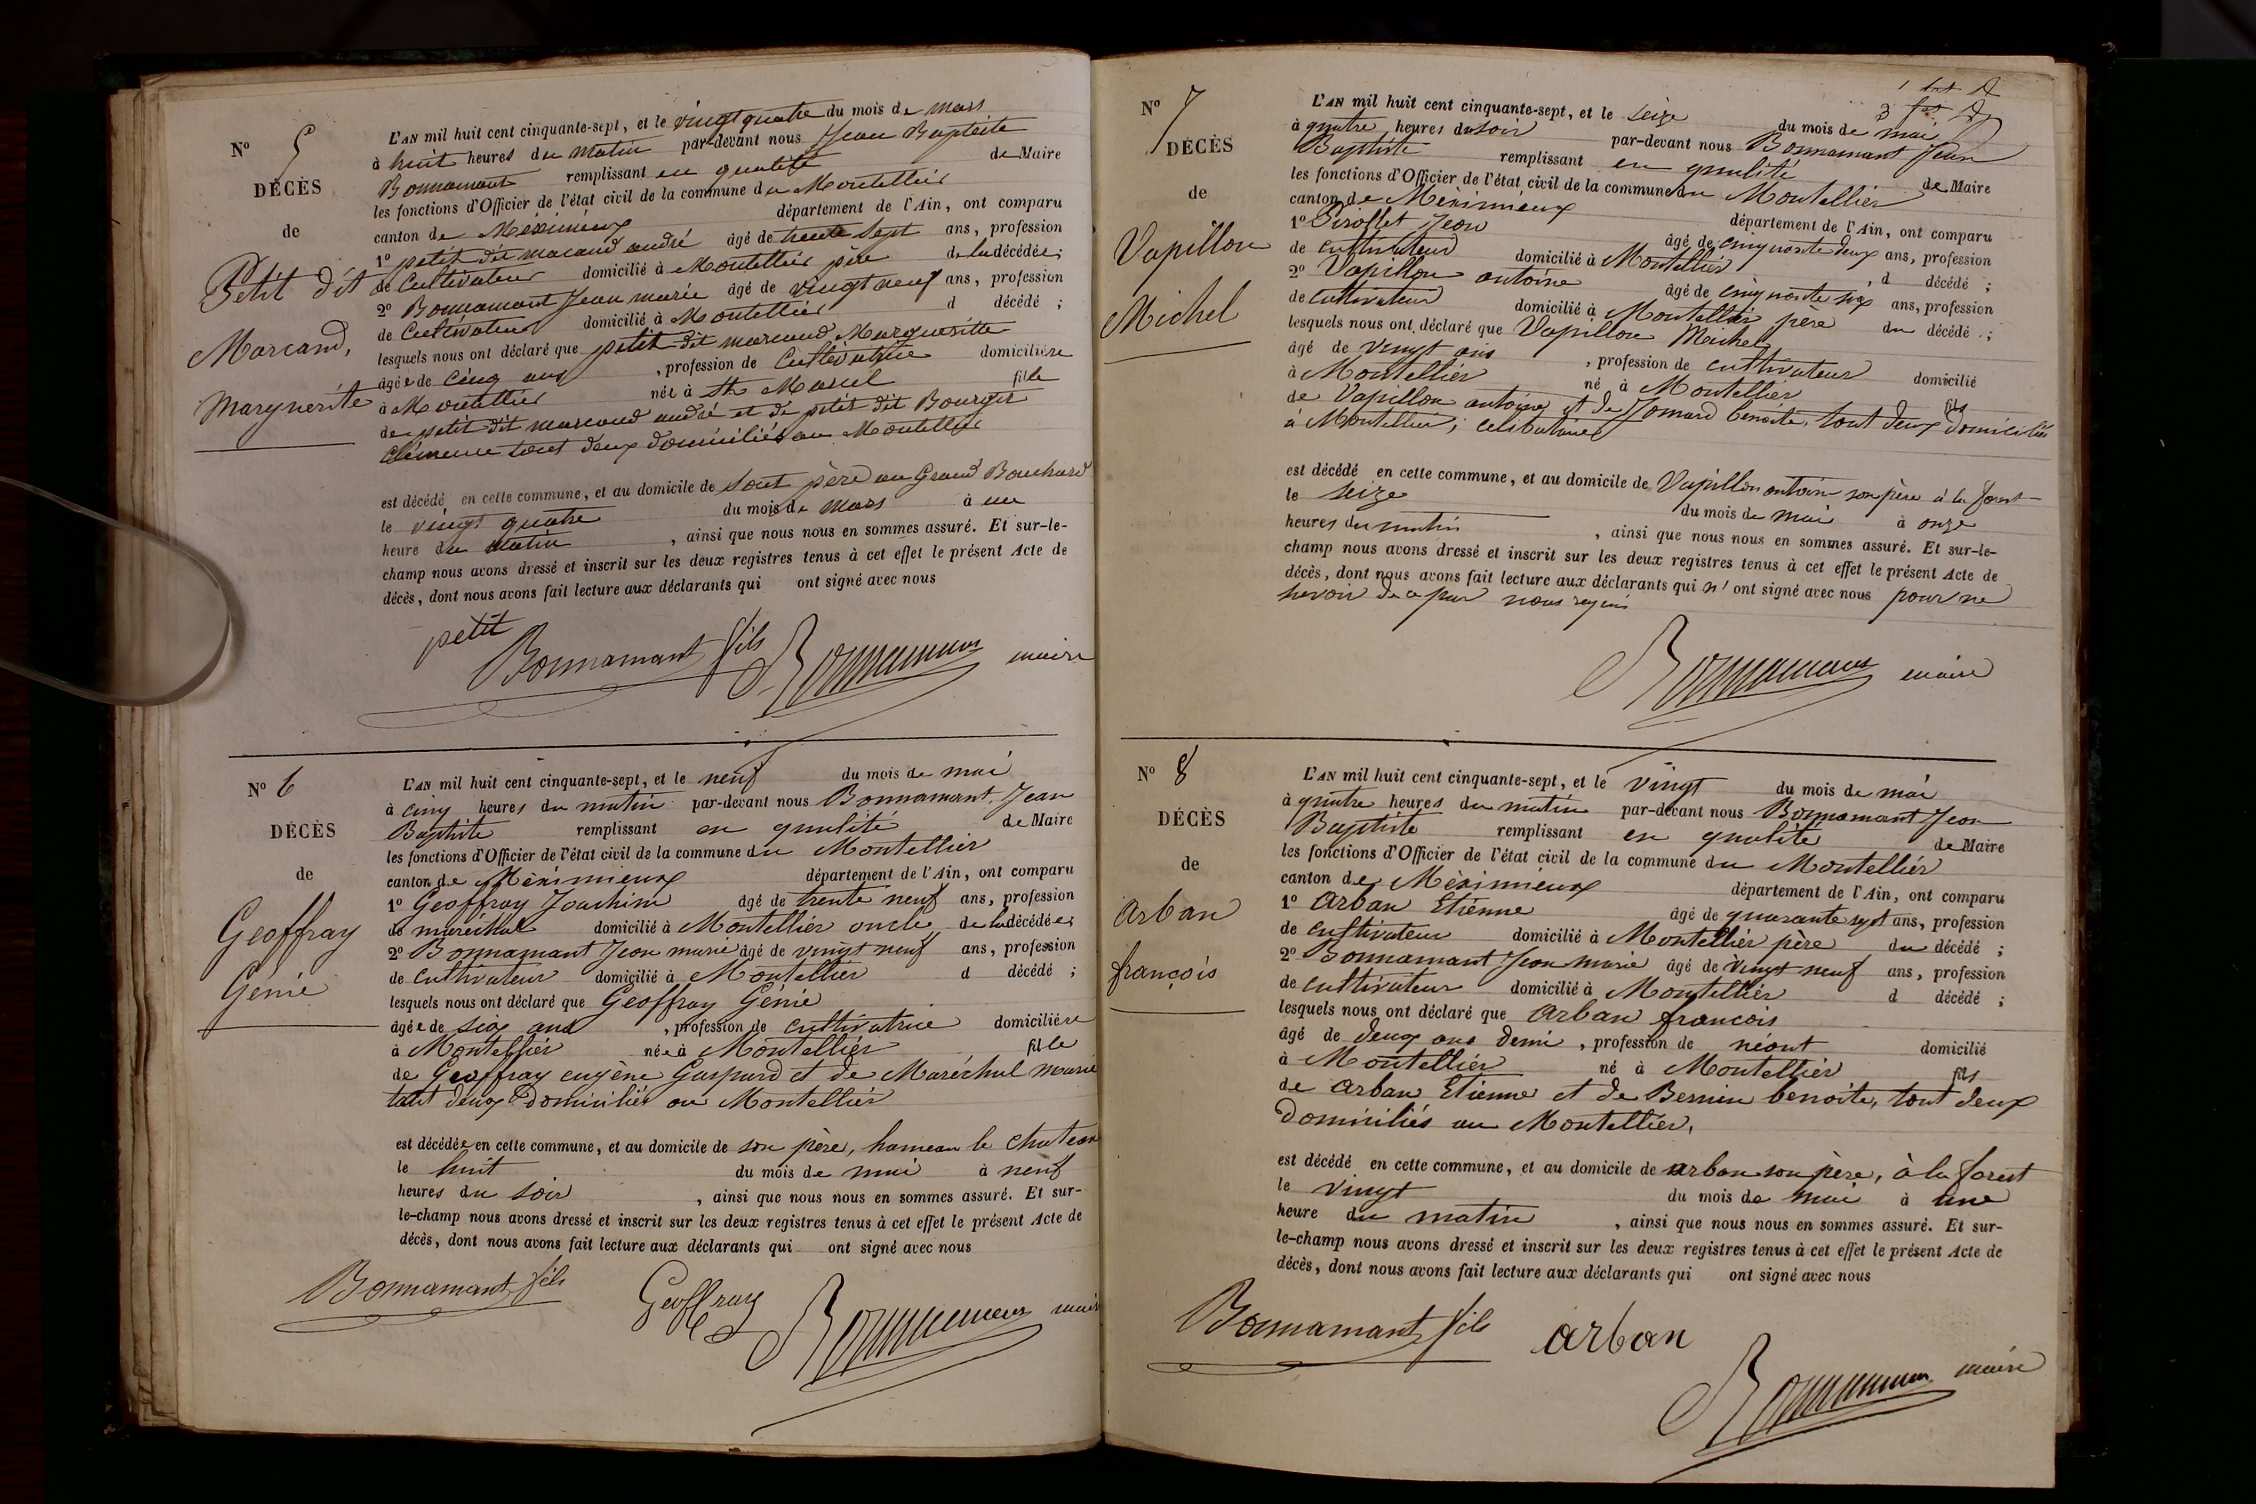 N° 5
DÉCÈS
de
Petit dit
Marcand,
Marguerite
L'AN mil huit cent cinquante-sept, et le vingt quatre du mois de mars
à huit heures du matin par-devant nous Jean Baptiste
Bonnamant remplissant en qualité de Maire
les fonctions d'Officier de l'état civil de la commune du Montellier
canton de Méximieux département de l'Ain, ont comparu
1° petit dit macand andré âgé de trente sept ans, profession
de Cultivateur domicilié à Montellier père de la décédée;
2° Bonnamant Jean marie âgé de vingt neuf ans, profession
de Cultivateur domicilié à Montellier d décédé ;
lesquels nous ont déclaré que petit dit marcand Marguerite
âgée de cinq ans , profession de Cultivatrice domiciliére
à Montellier née à Ste Marcel fille
de petit dit marcand andré et de petit dit Bourget
clémence tout deux domiciliés au Montellier
est décédé en cette commune, et au domicile de sont père au Grand Bouchard
le vingt quatre du mois de mars à un
heure du matin , ainsi que nous nous en sommes assuré. Et sur-le-
champ nous avons dressé et inscrit sur les deux registres tenus à cet effet le présent Acte de
décès, dont nous avons fait lecture aux déclarants qui ont signé avec nous
petit
Bonnamant fils Bonnamant maire
N° 6
DÉCÈS
de
Geoffray
Génie
L'AN mil huit cent cinquante-sept, et le neuf du mois de mai
à cinq heures du matin par-devant nous Bonnamant Jean
Baptiste remplissant en qualité de Maire
les fonctions d'Officier de l'état civil de la commune du Montellier
canton de Méximieux département de l'Ain, ont comparu
1° Geoffray Joachim âgé de trente neuf ans, profession
de maréchal domicilié à Montellier oncle de la décédée;
2° Bonnamant Jean marie âgé de vingt neuf ans, profession
de cultivateur domicilié à Montellier d décédé ;
lesquels nous ont déclaré que Geoffray Génie
âgée de six ans , profession de cultivatrice domiciliére
à Montellier née à Montellier fille
de Geoffray eugène Gaspard et de Maréchal marie
tout deux domiciliés au Montellier
est décédée en cette commune, et au domicile de son père, hameau le chateau
le huit du mois de mai à neuf
heures du soir , ainsi que nous nous en sommes assuré. Et sur-
le-champ nous avons dressé et inscrit sur les deux registres tenus à cet effet le présent Acte de
décès, dont nous avons fait lecture aux déclarants qui ont signé avec nous
Bonnamant fils Geoffray Bonnamant maire
N° 7
DÉCÈS
de
Vapillon
Michel
L'AN mil huit cent cinquante-sept, et le seize du mois de mai
à quatre heures du soir par-devant nous Bonnamant Jean
Baptiste remplissant en qualité de Maire
les fonctions d'Officier de l'état civil de la commune du Montellier
canton de Méximieux département de l'Ain, ont comparu
1° Pirollet Jean âgé de cinquante deux ans, profession
de cultivateur domicilié à Montellier , d décédé ;
2° Vapillon antoine âgé de cinquante six ans, profession
de cultivateur domicilié à Montellier père du décédé ;
lesquels nous ont déclaré que Vapillon Michel
âgé de vingt ans , profession de cultivateur domicilié
à Montellier né à Montellier fils
de Vapillon antoine et de Jomard benoite, tout deux domiciliés
à Montellier, celibataire
est décédé en cette commune, et au domicile de Vapillon antoine son père à la forest
le seize du mois de mai à onze
heures du matin , ainsi que nous nous en sommes assuré. Et sur-le-
champ nous avons dressé et inscrit sur les deux registres tenus à cet effet le présent Acte de
décès, dont nous avons fait lecture aux déclarants qui n' ont signé avec nous pour ne
savoir de ce par nous requis
Bonnamant maire
N° 8
DÉCÈS
de
Arban
françois
L'AN mil huit cent cinquante-sept, et le vingt du mois de mai
à quatre heures du matin par-devant nous Bonnamant Jean
Baptiste remplissant en qualité de Maire
les fonctions d'Officier de l'état civil de la commune du Montellier
canton de Méximieux département de l'Ain, ont comparu
1° Arban Etienne âgé de quarante sept ans, profession
de cultivateur domicilié à Montellier père du décédé ;
2° Bonnamant Jean marie âgé de vingt neuf ans, profession
de cultivateur domicilié à Montellier d décédé ;
lesquels nous ont déclaré que Arban francois
âgé de deux ans demi , profession de néant domicilié
à Montellier né à Montellier fils
de Arban Etienne et de Bernin benoite, tout deux
domiciliés au Montellier,
est décédé en cette commune, et au domicile de arban son père, à la forest
le vingt du mois de mai à une
heure du matin , ainsi que nous nous en sommes assuré. Et sur-
le-champ nous avons dressé et inscrit sur les deux registres tenus à cet effet le présent Acte de
décès, dont nous avons fait lecture aux déclarants qui ont signé avec nous
Bonnamant fils arban Bonnamant maire